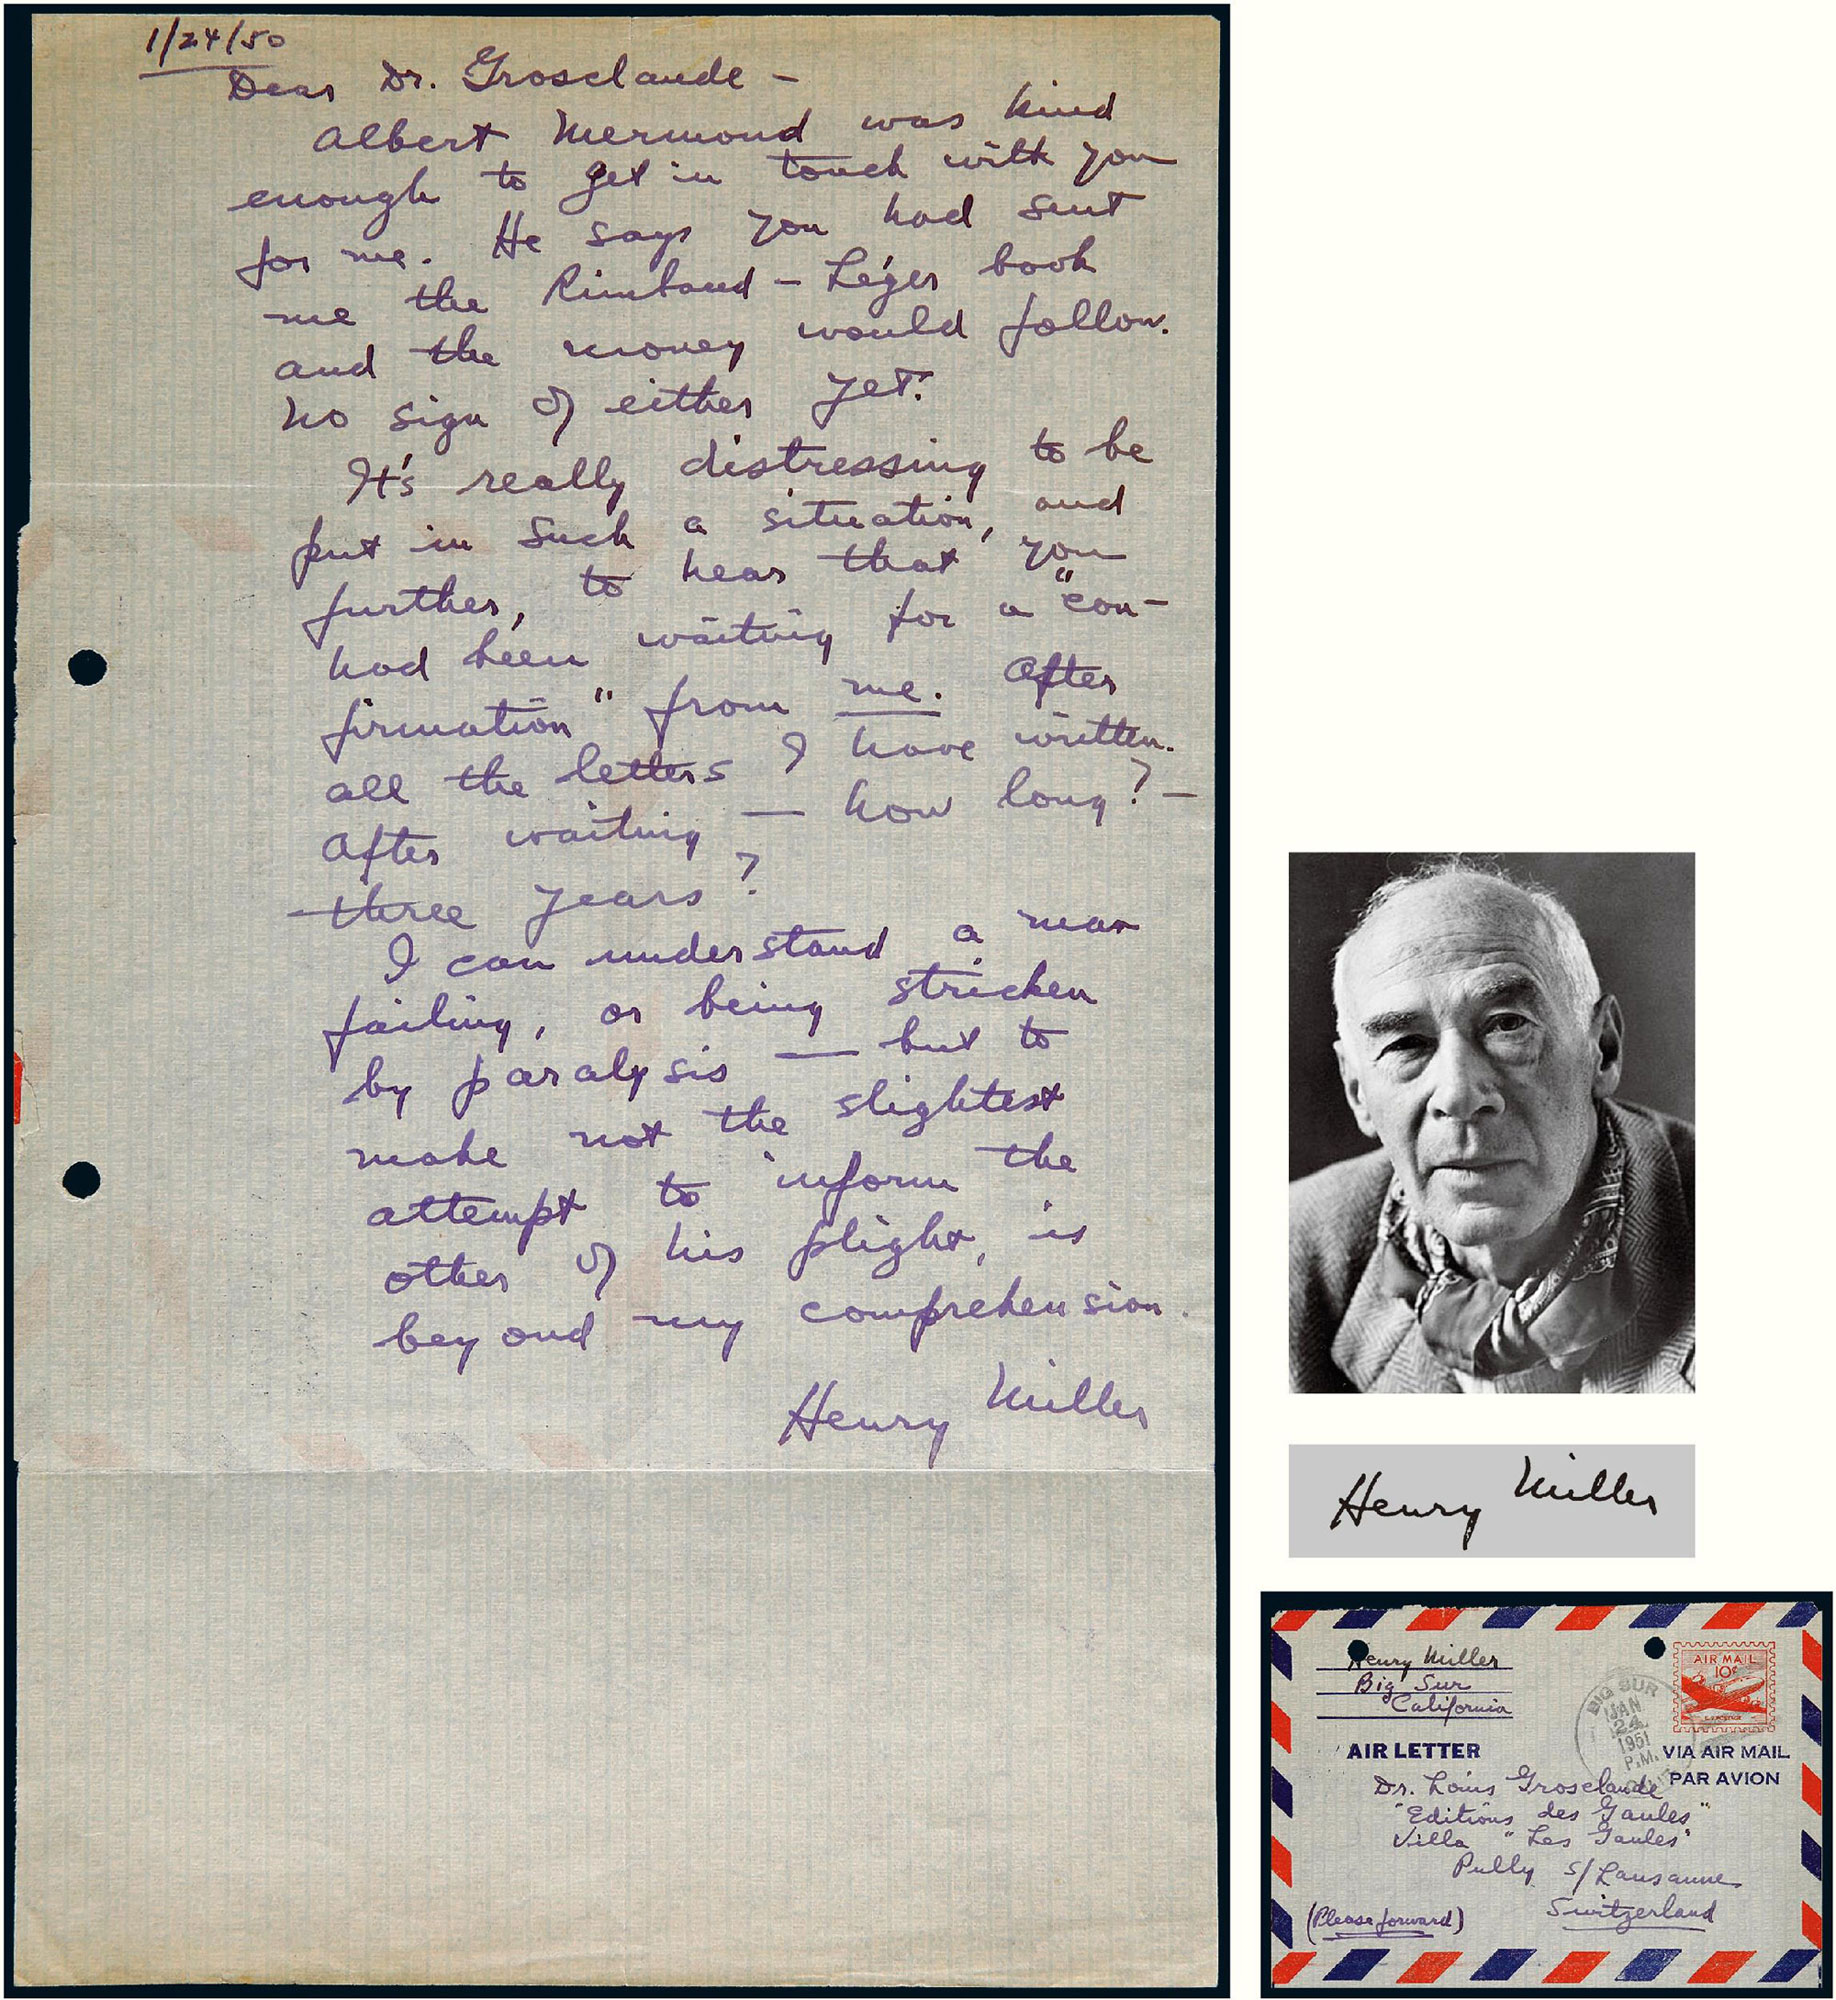 1/24/50
Dear Dr. Grosclaude —
Albert Mermoud was kind
enough to get in touch with you
for me. He says you had sent
me the Rimbaud – Léger book
and the money would follow.
No sign of either yet.
It's really distressing to be
put in such a situation, and
further, to hear that you
had been waiting for a "con-
firmation" from me. After
all the letters I have written.
After waiting — how long? —
three years?
I can understand a man
failing, or being stricken
by paralysis — but to
make not the slightest
attempt to inform the
other of his plight, is
beyond my comprehension.
Henry Miller
Henry Miller
Henry Miller
Big Sur
California
AIR MAIL
10¢
BIG SUR
JAN
24
1951
P.M.
AIR LETTER
VIA AIR MAIL
PAR AVION
Dr. Louis Grosclaude
"Editions des Gaules"
Villa "Les Gaules"
Pully s/Lausanne
Switzerland
(Please forward)